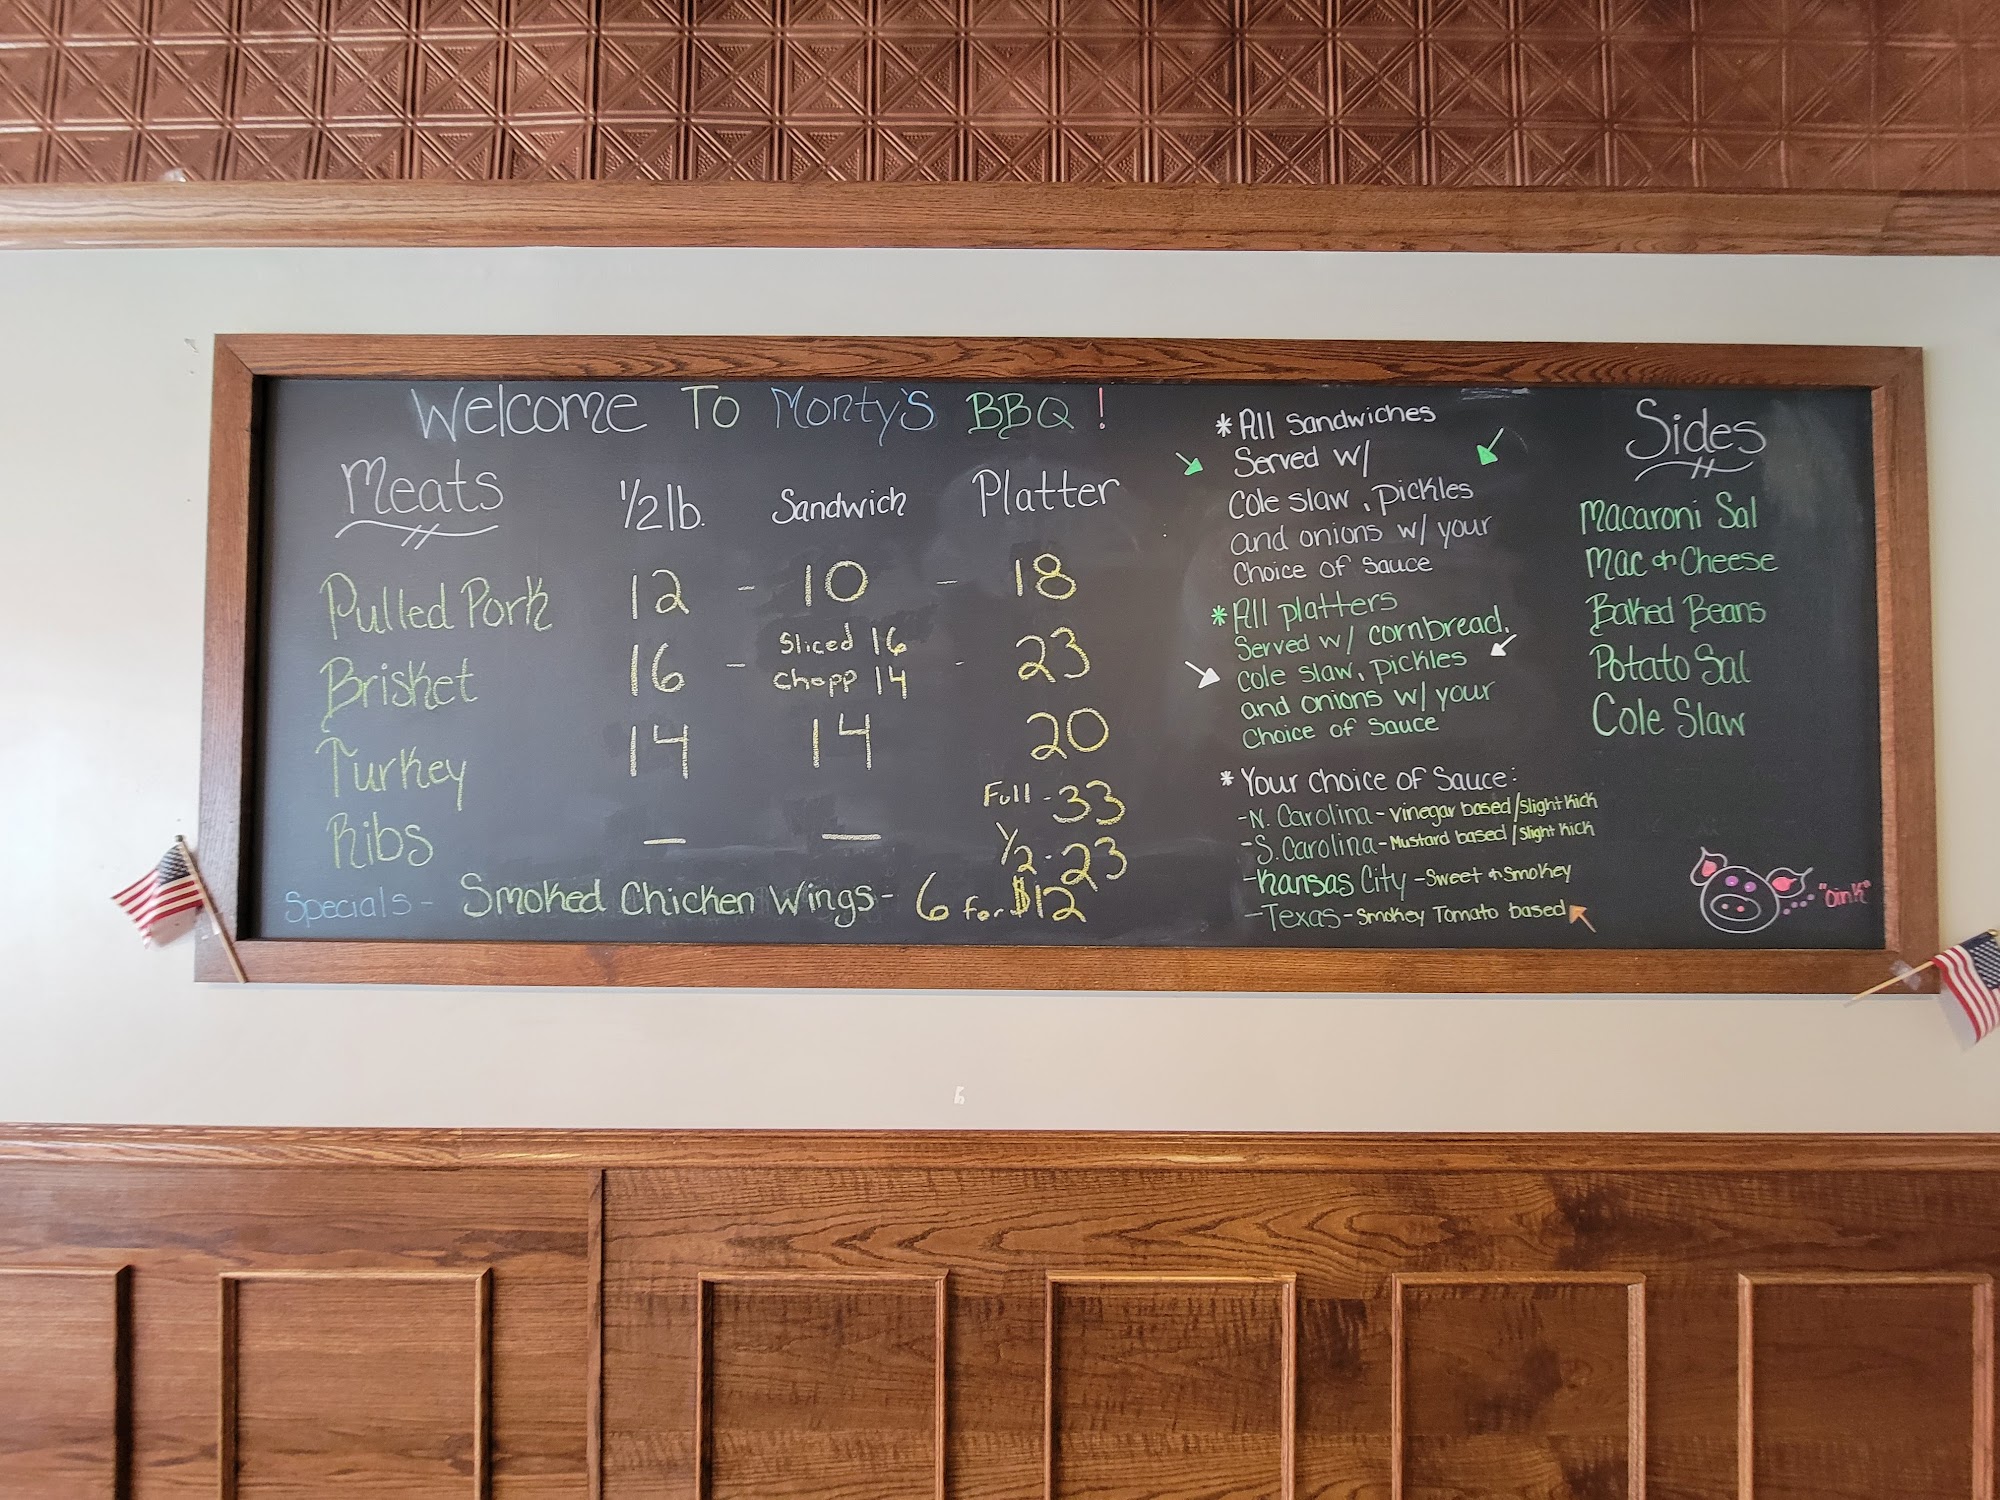 Welcome To Monty's BBQ!
Meats 1/2 lb. Sandwich Platter
Pulled Pork 12 - 10 - 18
Brisket 16 - Sliced 16 - 23
Chopp 14
Turkey 14 14 20
Ribs — — Full - 33
1/2 - 23
Specials - Smoked Chicken Wings - 6 for $12
* All Sandwiches
Served w/
Cole slaw, pickles
and onions w/ your
Choice of sauce
* All platters
Served w/ cornbread,
Cole slaw, pickles
and onions w/ your
Choice of sauce
* Your choice of Sauce:
- N. Carolina - Vinegar based/slight kick
- S. Carolina - Mustard based/slight kick
- Kansas City - Sweet & Smokey
- Texas - Smokey Tomato based
Sides
Macaroni Sal
Mac & Cheese
Baked Beans
Potato Sal
Cole Slaw
"oink"